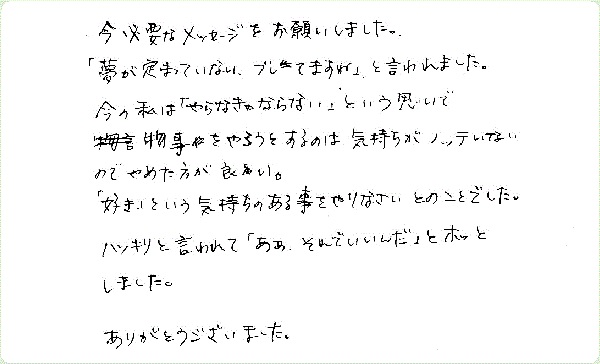 今必要なメッセージをお願いしました。
「夢が定まっていない、ブレきてますね」と言われました。
今の私は「やらなきゃならない」という思いで
物事をやろうとするのは気持ちがノッテいない
のでやめた方が良い。
「好き」という気持ちのある事をやりなさいとのことでした。
ハッキリと言われて「あぁ、それでいいんだ」とホッと
しました。
ありがとうございました。